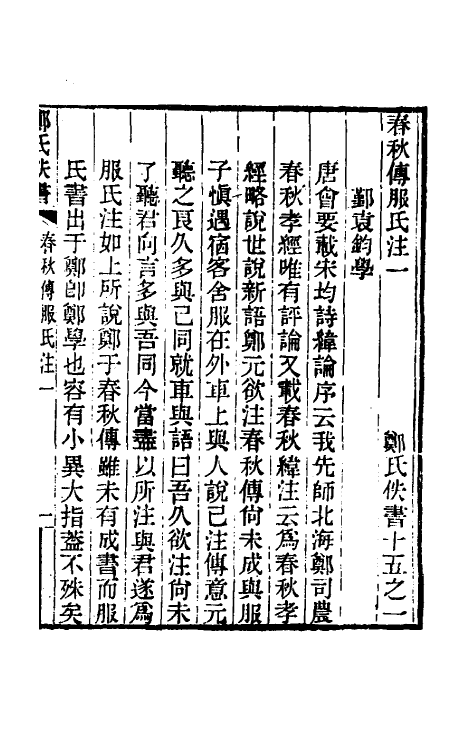 春秋傳服氏注一　鄭氏佚書十五之一
鄞袁鈞學
唐會要載宋均詩緯論序云我先師北海鄭司農
春秋孝經唯有評論又載春秋緯注云爲春秋孝
經略說世說新語鄭元欲注春秋傳尙未成與服
子愼遇宿客舍服在外車上與人說己注傳意元
聽之良久多與己同就車與語曰吾久欲注尙未
了聽君向言多與吾同今當盡以所注與君遂爲
服氏注如上所說鄭于春秋傳雖未有成書而服
氏書出于鄭卽鄭學也容有小異大指葢不殊矣
鄭氏佚書　春秋傳服氏注一　一